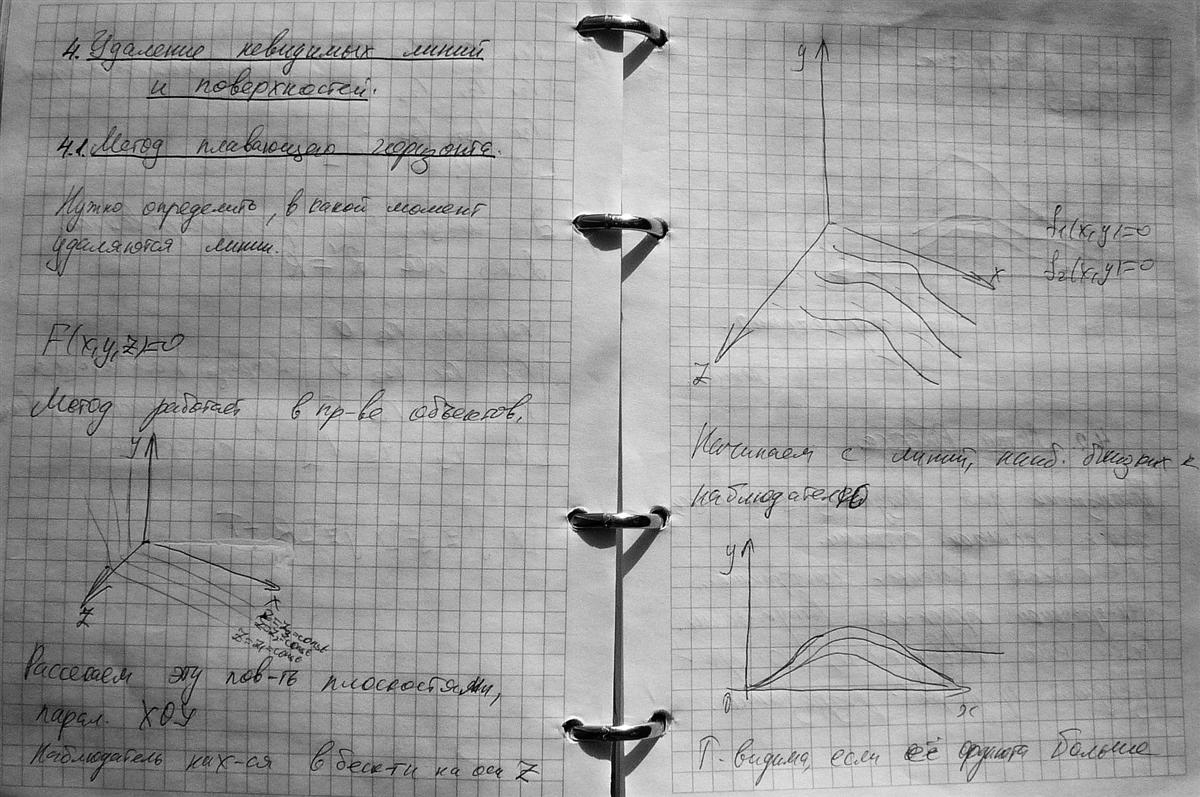 4. Удаление невидимых линий
и поверхностей.
4.1. Метод плавающего горизонта.
Нужно определить, в какой момент
удаляются линии.
F(x,y,z)=0
Метод работает в пр-ве объектов.
y
x
z
z=z3=const
z=z2=const
z=z1=const
Рассекаем эту пов-ть плоскостями,
парал. XOY
Наблюдатель нах-ся в беск-ти на оси Z
y
f1(x,y)=0
f2(x,y)=0
x
z
Начинаем с линий, наиб. близких к
наблюдателю
y
0
x
Т. видима, если её больше